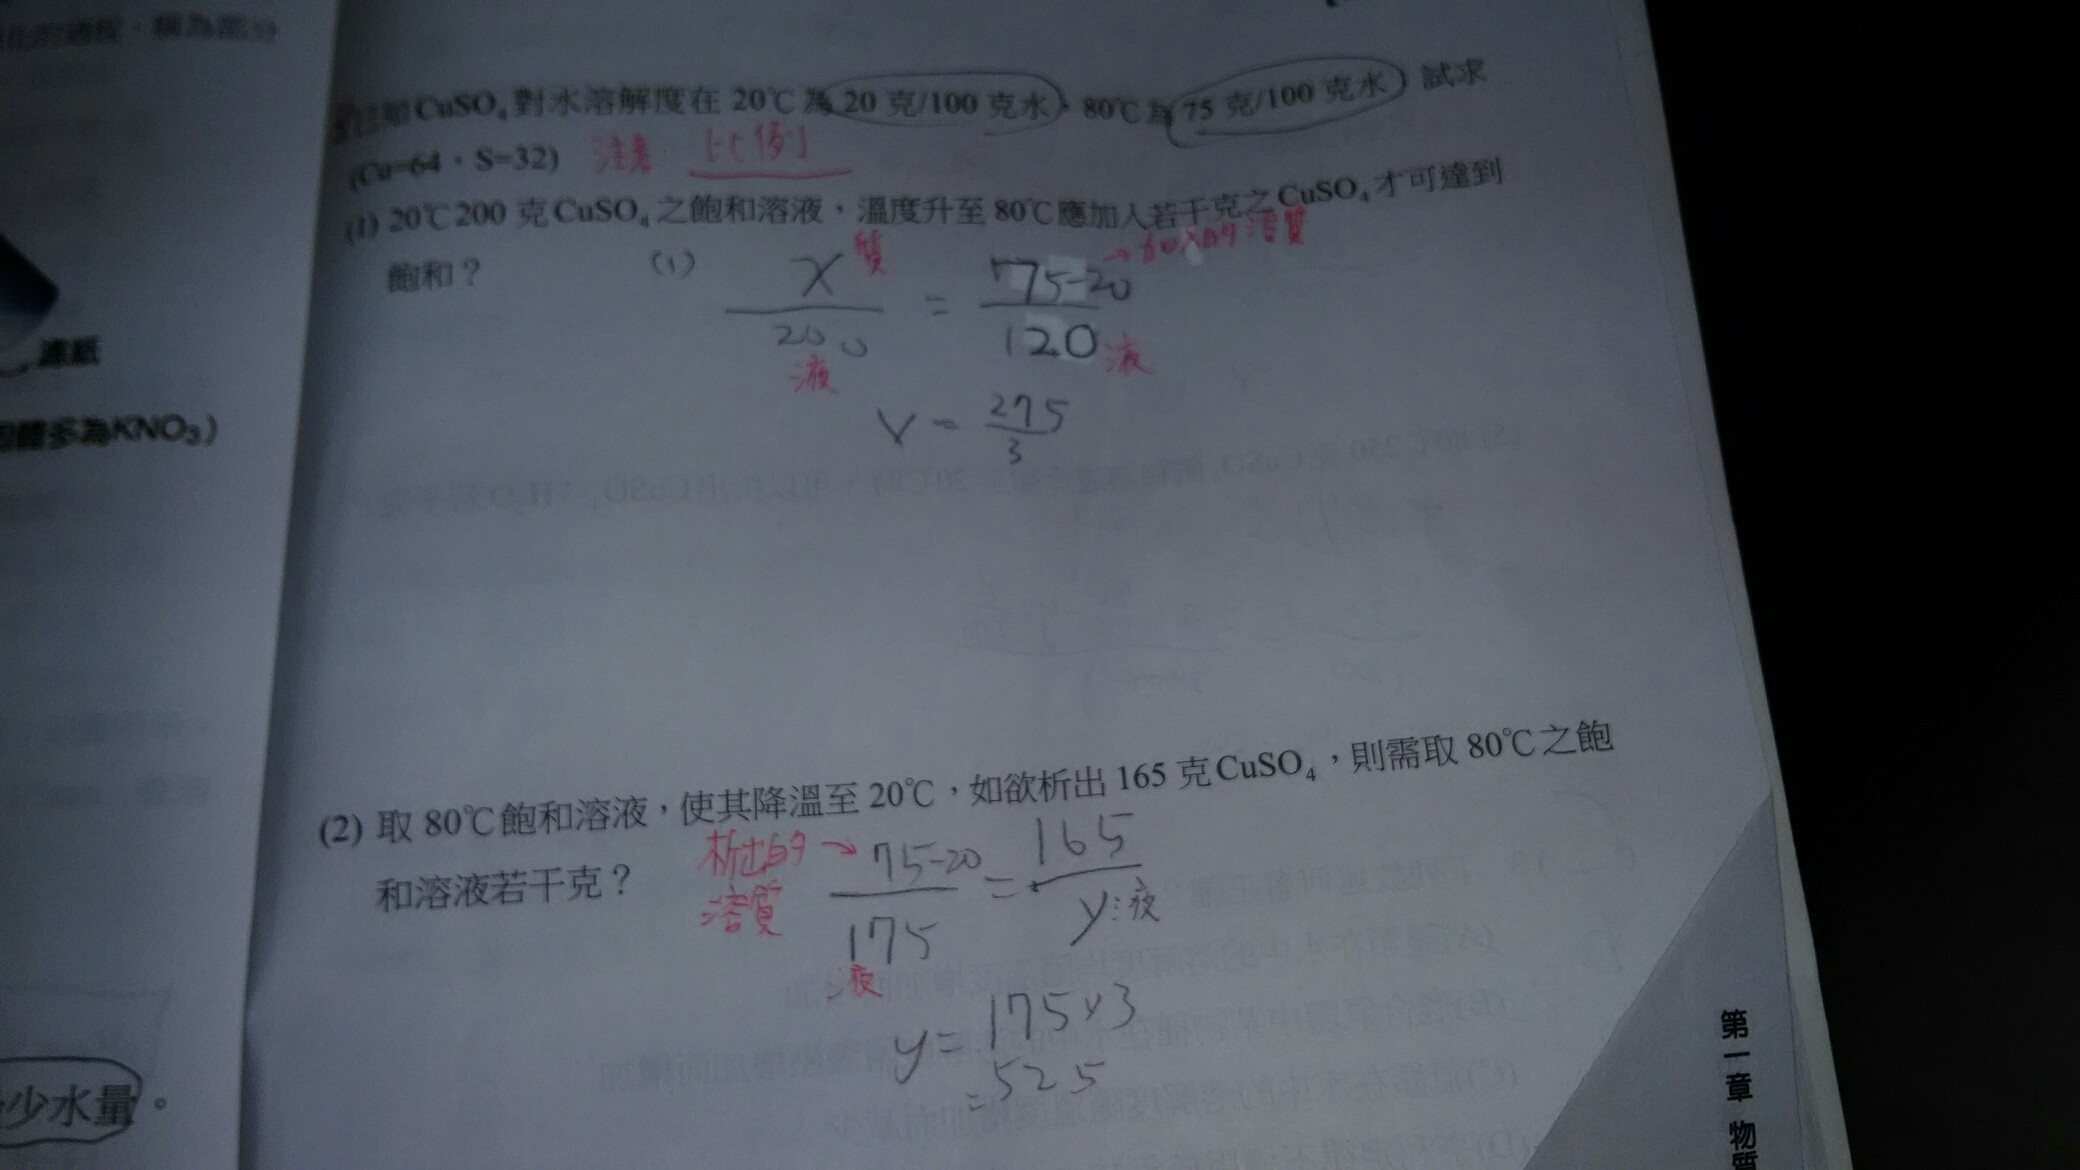 CuSO₄對水溶解度在 20℃ 為 20 克/100 克水，80℃ 為 75 克/100 克水，試求
(Cu=64，S=32) 注意：比例
(1) 20℃ 200 克 CuSO₄ 之飽和溶液，溫度升至 80℃ 應加入若干克之 CuSO₄ 才可達到
飽和？
(1) x 質 / 200 液 = 75-20 → 加入的溶質 / 120 液
x = 275/3
(2) 取 80℃ 飽和溶液，使其降溫至 20℃，如欲析出 165 克 CuSO₄，則需取 80℃ 之飽
和溶液若干克？
析出的溶質 → 75-20 / 175 液 = 165 / y 液
y = 175×3
= 525
濾紙
固體多為KNO₃)
少水量。
第一章 物質